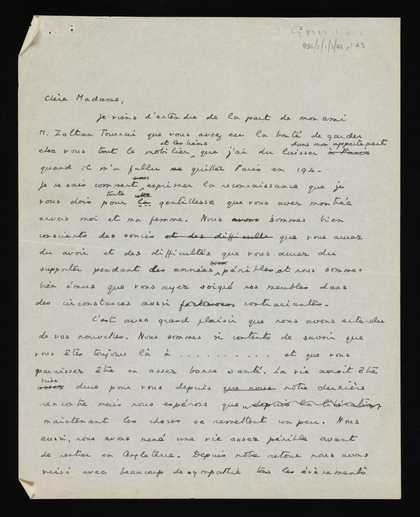 Chère Madame,
Je viens d'entendre de la part de mon ami
M. Zoltan que vous avez eu la bonté de garder
et les biens dans mon appartement
chez vous tout le mobilier, que j'ai du laisser
quand il m'a fallu quitter Paris en 194-
vous
Je ne sais comment exprimer la reconnaissance que je
toute
vous dois pour la gentillesse que vous avez montrée
envers moi et ma femme. Nous avons sommes bien
conscients des soucis et des difficultés que vous avez
du avoir et des difficultés que vous avez du
supporter pendant des années pénibles et nous sommes
très émus que vous ayez soigné nos meubles dans
des circonstances aussi contrariantes.
C'est avec grand plaisir que nous avons entendu
de vos nouvelles. Nous sommes si contents de savoir que
vous êtes toujours là à . . . . . . . . . . . et que vous
paraissez être en assez bonne santé. La vie aurait été
dure pour vous depuis que nous notre dernière
rencontre mais nous espérons que depuis la libération
maintenant les choses se remettent un peu. Nous
aussi, nous avons mené une vie assez pénible avant
de rentrer en Angleterre. Depuis notre retour nous avons
suivi avec beaucoup de sympathie tous les évènements